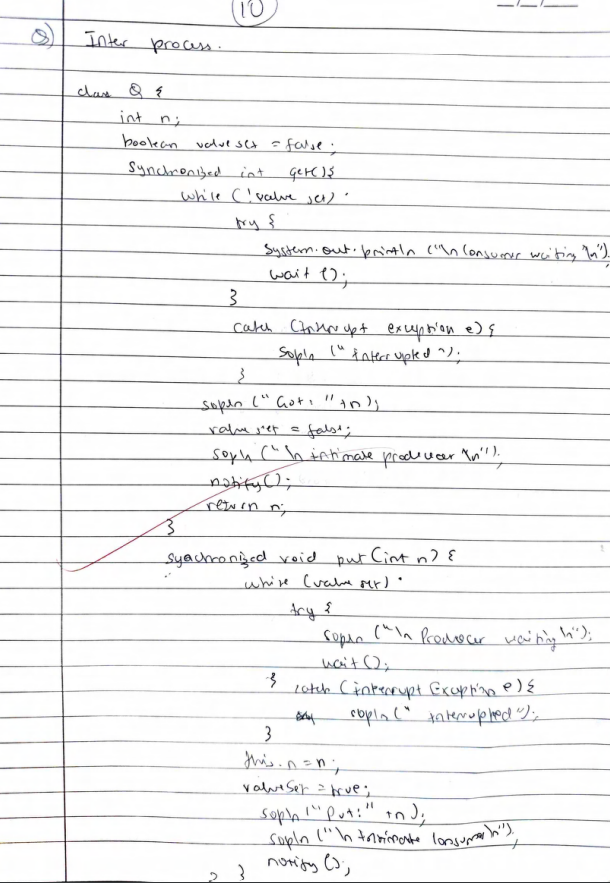 10
Q) Inter process.
class Q {
int n;
boolean value set = false;
Synchronized int get(){
while (!value set)
try {
System.out.println ("\n Consumer waiting \n")
wait ();
}
catch (Interrupt exception e) {
Sopln (" interrupted ");
}
sopln (" Got: " +n);
value set = false;
sopln (" \n intimate producer \n");
notify();
return n;
}
synchronized void put (int n) {
while (value set)
try {
sopln ("\n Producer waiting \n");
wait ();
} catch (interrupt Exception e) {
sopln (" interrupted ");
}
this.n = n;
valueSet = true;
sopln ("Put:" +n);
sopln ("\n Intimate consumer \n");
notify ();
} }